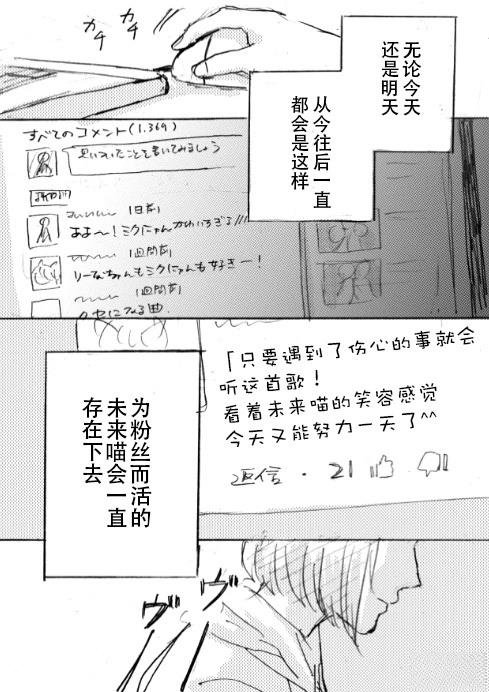 カチ
カチ
无论今天
还是明天
从今往后一直
都会是这样
すべてのコメント(1.369)
思いついたことを書いてみましょう
1日前
ああ〜!ミクにゃんかわいすぎる!!!
1週間前
りーなちゃんもミクにゃんも好きー!
1週間前
「只要遇到了伤心的事就会
听这首歌!
看着未来喵的笑容感觉
今天又能努力一天了^^
返信・21
为粉丝而活的
未来喵会一直
存在下去
ヴ
ヴ